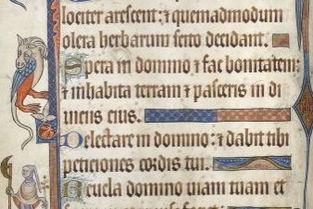 lociter arescent: & quemadmodum
olera herbarum scito decidant.
Spera in domino & fac bonitatem:
& inhabita terram & pasceris in di
uiciis eius.
Delectare in domino: & dabit tibi
peticiones cordis tui.
Reuela domino uiam tuam et